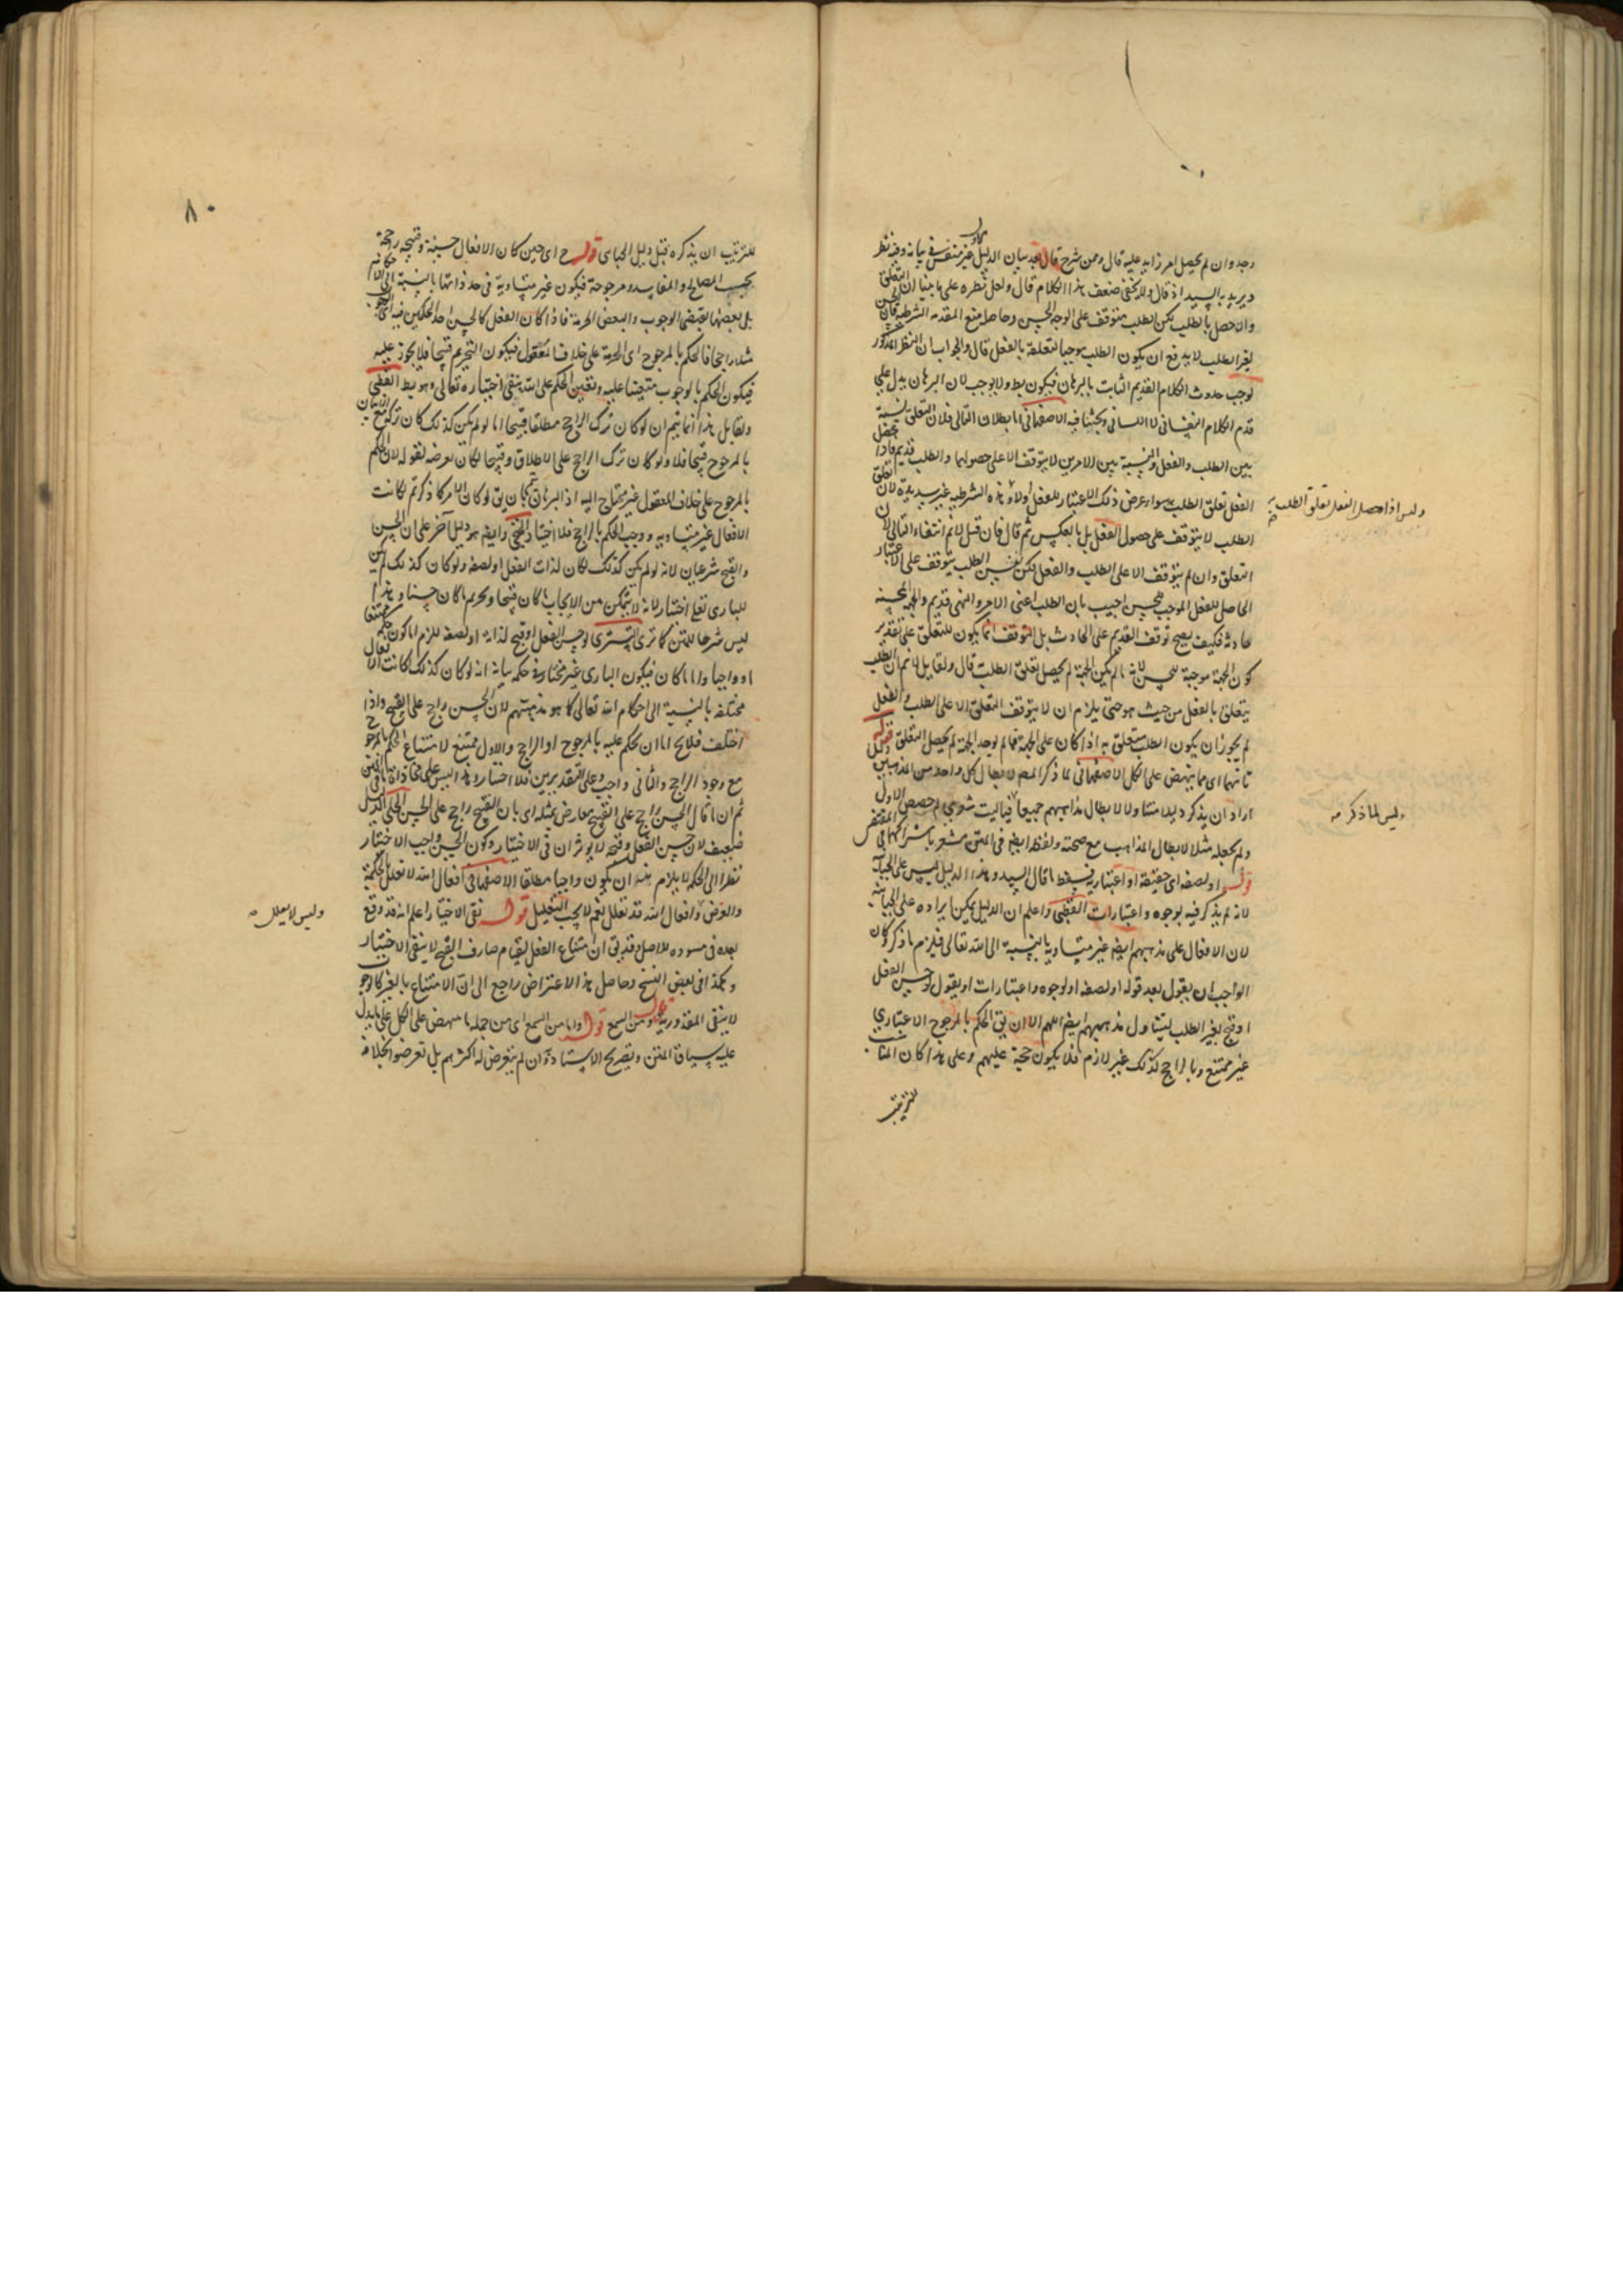 وجد وان لم يحصل امر زايد عليه قال وممن شرح قال بعد بيان الدليل غير منقس في بيانه وفيه نظر
ويريد به السيد اذ قال ولا يخفى ضعف هذا الكلام قال ولعل نظره على ما بينا ان التعلق
وان حصل بالطلب لكن الطلب متوقف على الوجه الحسن وحاصله منع المقدمة الشرطية فان الحسن
لغير الطلب لا يدفع ان يكون الطلب موجبا لتعلقه بالفعل قال والجواب ان النظر المذكور
يوجب حدوث الكلام القديم الثابت بالبرهان فيكون بط ولا يوجب لان البرهان يدل على
قدم الكلام النفساني لا اللساني وبحثنا فيه الاصفهاني اما بطلان التالي فلان التعلق نسبة
بين الطلب والفعل والنسبة بين الامرين لا يتوقف الا على حصولهما والطلب قديم فاذا حصل
الفعل تعلق الطلب به سواء عرض ذلك الاعتبار للفعل اولا وهذه الشرطية غير سديدة لان تعلق
الطلب لا يتوقف على حصول الفعل بل بالعكس ثم قال فان قيل لا نم انتفاء التالي لان
التعلق وان لم يتوقف الا على الطلب والفعل لكن نفس الطلب يتوقف على الاعتبار
الحاصل للفعل الموجب للحسن اجيب بان الطلب اعنى الامر والنهى قديم والجهة المحسنة
حادثة فكيف يصح توقف القديم على الحادث بل التوقف انما يكون للتعلق على تقدير
كون الجهة موجبة للحسن لانه ما لم يكن الجهة لم يحصل تعلق الطلب قال ولقايل لا نم ان الطلب
يتعلق بالفعل من حيث هو حتى يلزم ان لا يتوقف التعلق الا على الطلب والفعل
لم يجوز ان يكون الطلب متعلق به اذا كان على الجهة فما لم يوجد الجهة لم يحصل التعلق قوله
ثانيهما اى مما ينهض على الكل الاصفهاني لما ذكر المص لابطال كل واحد من المذهبين دليلا
اراد ان يذكر دليلا متناولا لابطال مذاهبهم جميعا فياليت شعري لم خصص الاول
ولم يجعله مثلا لابطال المذاهب مع صحته ولفظ ايضا في المتن مشعر باشتراكهما في المقتضى
قوله او لصفة اى حقيقة او اعتبارية فيسقط ما قال السيد وهذا الدليل ليس على الجبائية
لانه لم يذكر فيه لوجوه واعتبارات القطبى واعلم ان الدليل يمكن ايراده على الجبائية
لان الافعال على مذهبهم ايضا غير متساوية بالنسبة الى الله تعالى فيلزم ما ذكر وكان
الواجب ان يقول بعد قوله او لصفة او لوجوه واعتبارات او يقول لو حسن الفعل
او قبح لغير الطلب ليتناول مذهبهم ايضا اللهم الا ان يق الحكم بالمرجوح الاعتباري
غير ممتنع وبالراجح كذلك غير لازم فلا يكون حجة عليهم وعلى هذا كان المناسب
للترتيب
وليس اذا حصل الفعل تعلق الطلب به
وليس لما ذكر منه
٨٠
للترتيب ان يذكره قبل دليل الجباى قوله ح اى حين كان الافعال حسنة وقبيحة راجحة
بحسب المصالح والمفاسد ومرجوحة فيكون غير متساوية في حد ذاتها بالنسبة الى الاحكام
بل بعضها يقتضى الوجوب والبعض الحرمة فاذا كان الفعل كالحسن احد الحكمين فيه الوجوب
مثلا راجحا فالحكم بالمرجوح اى الحرمة على خلاف المعقول فيكون التحريم قبيحا فلا يجوز عليه
فيكون الحكم بالوجوب متعينا عليه وتعين الحكم على الله ينفى اختياره تعالى وهو بط القطبى
ولقايل هذا انما يتم ان لو كان ترك الراجح مطلقا قبيحا اما لو لم يكن كذلك كان تركه مع الاتيان
بالمرجوح قبيحا فلا ولو كان ترك الراجح على الاطلاق وقبيحا لكان تعرضه لقوله لان الحكم
بالمرجوح على خلاف المعقول غير محتاج اليه اذ البرهان يتم بان يق لو كان الامر كما ذكرتم لكانت
الافعال غير متساوية ووجب الحكم بالراجح فلا اختيار الخنجى وايضا هو دليل آخر على ان الحسن
والقبح شرعيان لانه لو لم يكن كذلك لكان لذات الفعل او لصفة ولو كان كذلك لم يكن
للبارى تعالى اختيار لانه لا يتمكن من الايجاب لما كان قبيحا وتحريم ما كان حسنا وهذا
ليس شرحا للمتن كما ترى التسترى لو حسن الفعل او قبح لذاته او لصفة للزم اما كون حكمه ممتنعا
او واجبا وايا ما كان فيكون البارى غير مختار في حكمه بيانه انه لو كان كذلك لكانت الافعال
مختلفة بالنسبة الى احكام الله تعالى كما هو مذهبهم لان الحسن راجح على القبح واذا
اختلف فلا يخ اما ان يحكم عليه بالمرجوح او الراجح والاول ممتنع لامتناع الحكم بالمرجوح
مع وجود الراجح والثاني واجب وعلى التقديرين فلا اختيار وهذا ليس على محاذاة ما في المتن
ثم ان ما قال الحسن راجح على القبح معارض بمثله اى بان القبح راجح على الحسن الحلى الدليل
ضعيف لان حسن الفعل وقبحه لا يوثران في الاختيار وكون الحسن واجب الاختيار
نظرا الى الحكمة لا يلزم منه ان يكون واجبا مطلقا الاصفهاني افعال الله لا تعلل بالحكمة
والغرض وافعال الله قد تعلل نعم لا يجب التعليل قوله نفى الاختيار اعلم انه قد وقع
بعده في مسوده للاصل وقد يق ان امتناع الفعل لقيام صارف القبح لا ينفى الاختيار
وهكذا في بعض النسخ وحاصل هذا الاعتراض راجع الى ان الامتناع بالغير كالوجوب
لا ينفى المقدورية قوله ومن السمع قوله واما من السمع اى من جملة ما ينهض على الكل على ما يدل
عليه سياق المتن وتصريح الاستاذ وان لم يتعرض له اكثرهم بل تعرضوا بخلافه
وليس لا يعلل منه